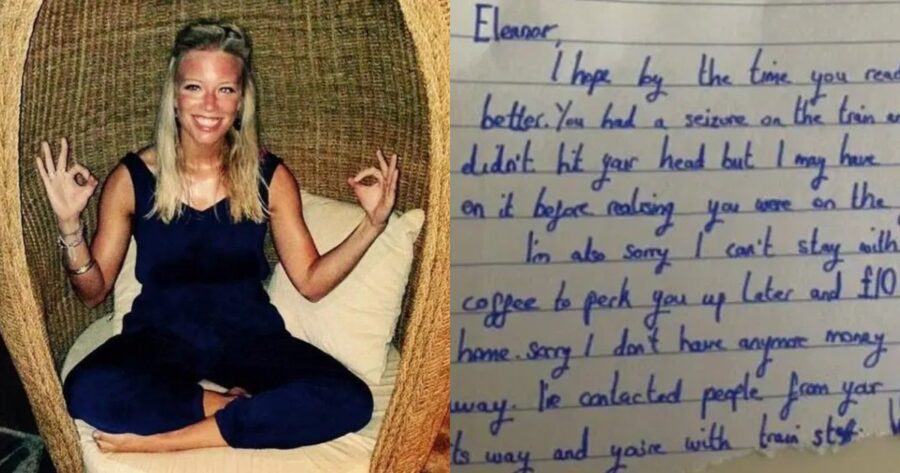 Eleanor,
I hope by the time you read
better. You had a seizure on the train
didn't hit your head but I may have
on it before realising you were on the
I'm also sorry I can't stay with
coffee to perk you up later and £10
home. Sorry I don't have anymore money
way. I've contacted people from your
ts way and you're with train staff.